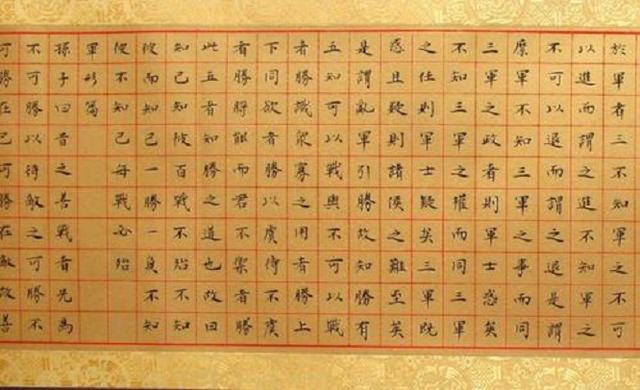 於軍者三不知軍之不可
以進而謂之進不知軍之
不可以退而謂之退是謂
縻軍不知三軍之事而同
三軍之政者則軍士惑矣
不知三軍之權而同三軍
之任則軍士疑矣三軍既
惑且疑則諸侯之難至矣
是謂亂軍引勝故知勝有
五知可以戰與不可以戰
者勝識衆寡之用者勝上
下同欲者勝以虞待不虞
者勝將能而君不禦者勝
此五者知勝之道也故曰
知己知彼百戰不殆不知
彼而知己一勝一負不知
彼不知己每戰必殆
軍形篇
孫子曰昔之善戰者先為
不可勝以待敵之可勝不
可勝在己可勝在敵故善